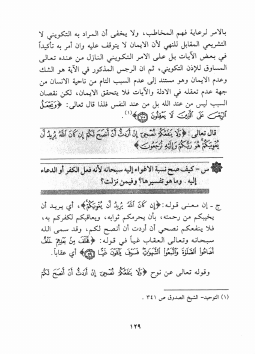 بالامر لرعاية فهم المخاطب، ولا يخفى أن المراد به التكويني لا
التشريعي المقابل للنهي لأن الايمان لا يتوقف عليه وان أمر به تأكيداً
في بعض الآيات بل على الامر التكويني النازل من عنده تعالى
المساوق للإذن التكويني، ثم ان الرجس المذكور في الآية هو الشك
وعدم الايمان وهو مستند إلى عدم السبب التام من ناحية الشخص من
جهة عدم تعقله في الادلة والآيات فلا يتحقق الايمان، لكن نقصان
السبب ليس من عند الله بل من عند النفس فلذا قال تعالى: ﴿وَيَجْعَلُ
الرِّجْسَ عَلَى الَّذِينَ لَا يَعْقِلُونَ﴾(١).
قال تعالى: ﴿وَلَا يَنفَعُكُمْ نُصْحِي إِنْ أَرَدتُّ أَنْ أَنصَحَ لَكُمْ إِن كَانَ اللَّهُ يُرِيدُ أَن
يُغْوِيَكُمْ هُوَ رَبُّكُمْ وَإِلَيْهِ تُرْجَعُونَ﴾
س - كيف صح نسبة الاغواء إليه سبحانه لأنه فعل الكفر أو الدعاء
إليه . وما هو تفسيرها؟ وفيمن نزلت؟
ج - إن معنى قوله: ﴿إِن كَانَ اللَّهُ يُرِيدُ أَن يُغْوِيَكُمْ﴾، أي يريد أن
يخيبكم من رحمته، بأن يحرمكم ثوابه، ويعاقبكم لكفركم به،
فلا ينفعكم نصحي أن أردت أن أنصح لكم، وقد سمى الله
سبحانه وتعالى العقاب غياً في قوله: ﴿فَخَلَفَ مِن بَعْدِهِمْ خَلْفٌ
أَضَاعُوا الصَّلَاةَ وَاتَّبَعُوا الشَّهَوَاتِ فَسَوْفَ يَلْقَوْنَ غَيًّا﴾ أي عقاباً.
وقوله تعالى عن نوح ﴿وَلَا يَنفَعُكُمْ نُصْحِي إِنْ أَرَدتُّ أَنْ أَنصَحَ لَكُمْ
(١) التوحيد- الشيخ الصدوق ص ٣٤١ .
١٢٩